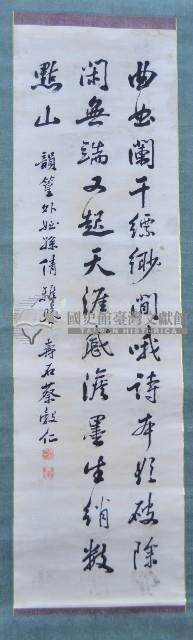 曲曲闌干縹緲間哦詩本彩破除
閑無端又起天涯感潑墨生綃數
點山
韻篁外姪孫倩雅鑒 壽石蔡穀仁
國史館臺灣文獻館
TAIWAN HISTORICA